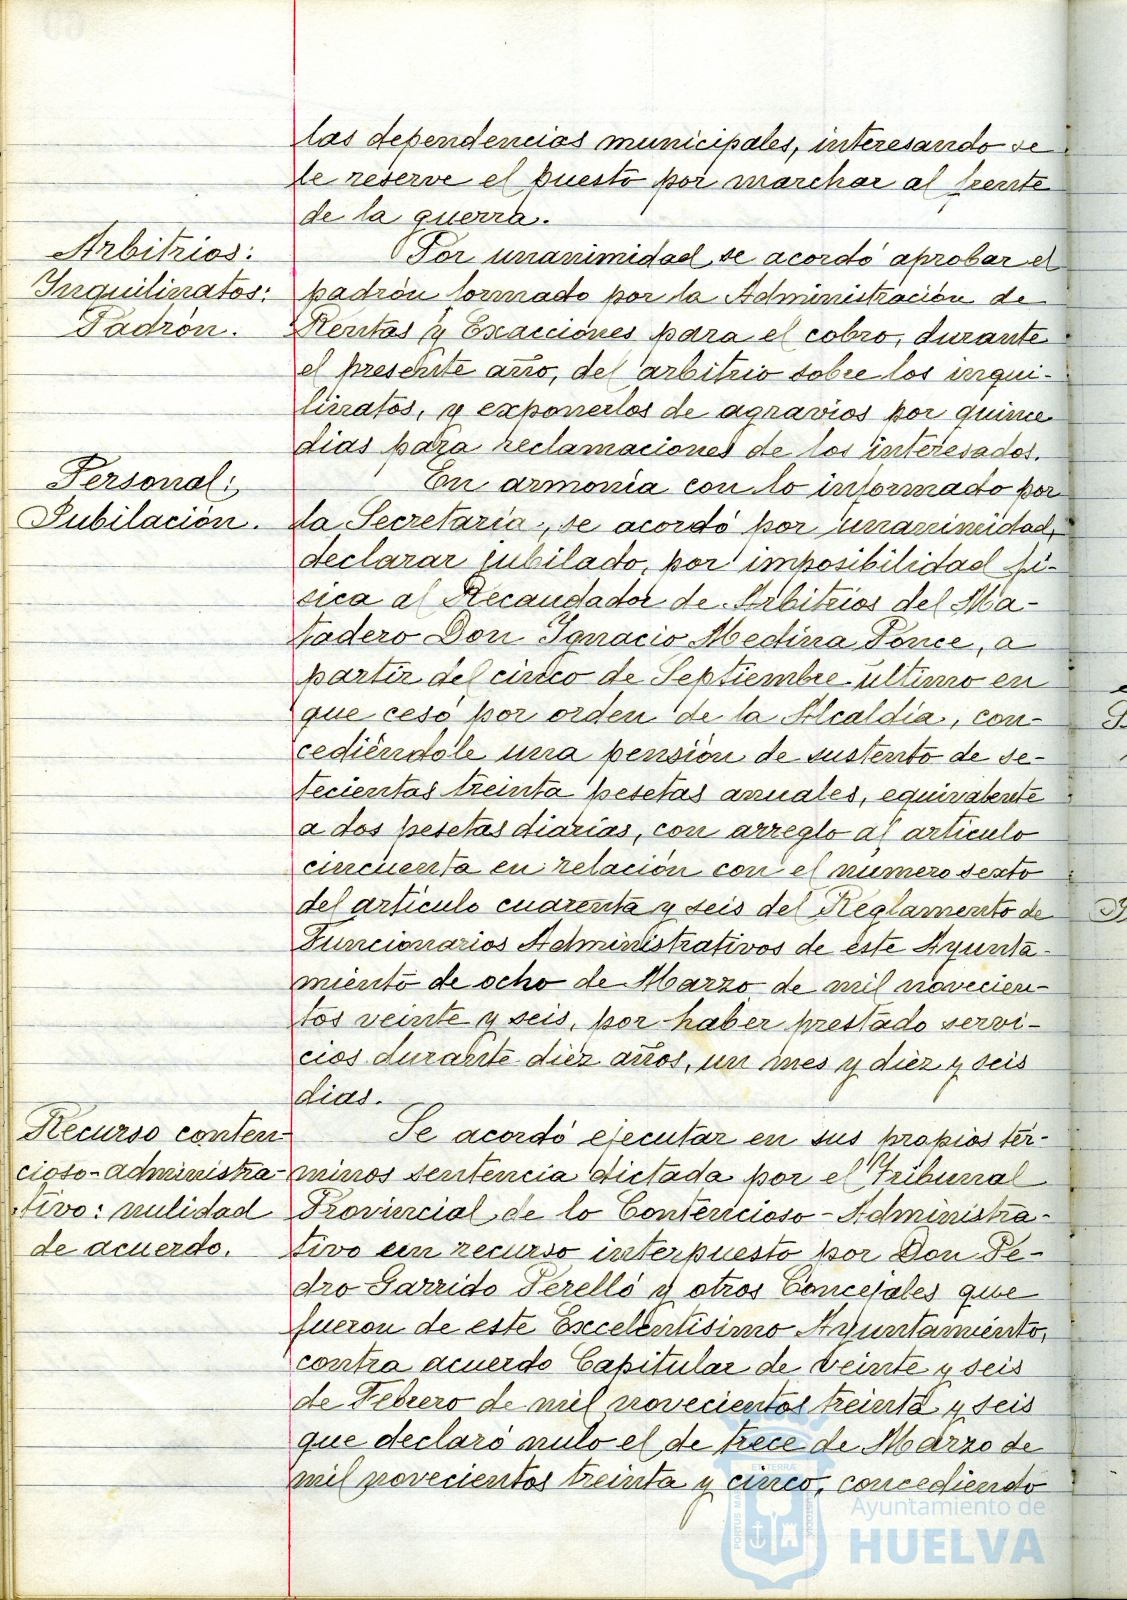 las dependencias municipales, interesando se
le reserve el puesto por marchar al frente
de la guerra.
Arbitrios:
Inquilinatos:
Padrón.
Por unanimidad se acordó aprobar el
padrón formado por la Administración de
Rentas y Exacciónes para el cobro, durante
el presente año, del arbitrio sobre los inqui-
linatos, y exponerlos de agravios por quince
dias para reclamaciones de los interesados.
Personal:
Jubilación.
En armonía con lo informado por
la Secretaría, se acordó por unanimidad,
declarar jubilado, por imposibilidad fi-
sica al Recaudador de Arbitrios del Ma-
tadero Don Ignacio Medina Ponce, a
partir del cinco de Septiembre último en
que cesó por orden de la Alcaldía, con-
cediéndole una pensión de sustento de se-
tecientas treinta pesetas anuales, equivalente
a dos pesetas diarias, con arreglo al artículo
cincuenta en relación con el número sexto
del artículo cuarenta y seis del Reglamento de
Funcionarios Administrativos de este Ayunta-
miento de ocho de Marzo de mil novecien-
tos veinte y seis, por haber prestado servi-
cios durante diez años, un mes y diez y seis
dias.
Recurso conten-
cioso-administra-
tivo: nulidad
de acuerdo.
Se acordó ejecutar en sus propios tér-
minos sentencia dictada por el Tribunal
Provincial de lo Contencioso-Administra-
tivo en recurso interpuesto por Don Pe-
dro Garrido Perelló y otros Concejales que
fueron de este Excelentísimo Ayuntamiento,
contra acuerdo Capitular de veinte y seis
de Febrero de mil novecientos treinta y seis
que declaró nulo el de trece de Marzo de
mil novecientos treinta y cinco, concediendo
Ayuntamiento de
HUELVA